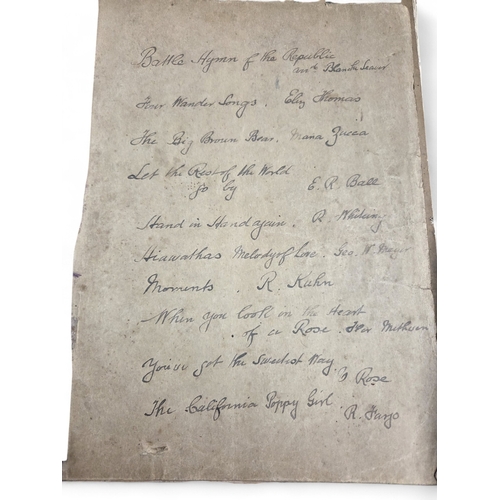 Battle Hymn of the Republic
Blanch
Wander Songs. Eliz Thomas
The Big Brown Bear. Mana Zucca
Let the Rest of the World
go by E. R. Ball
Hand in Hand again. R. Whiting
Hiawathas Melody of Love. Geo. W. Meyer
Moments. R. Kahn
When you look in the Heart
of a Rose. Methven
You've got the Sweetest Way
Rose
The California Poppy Girl.
R. Fargo